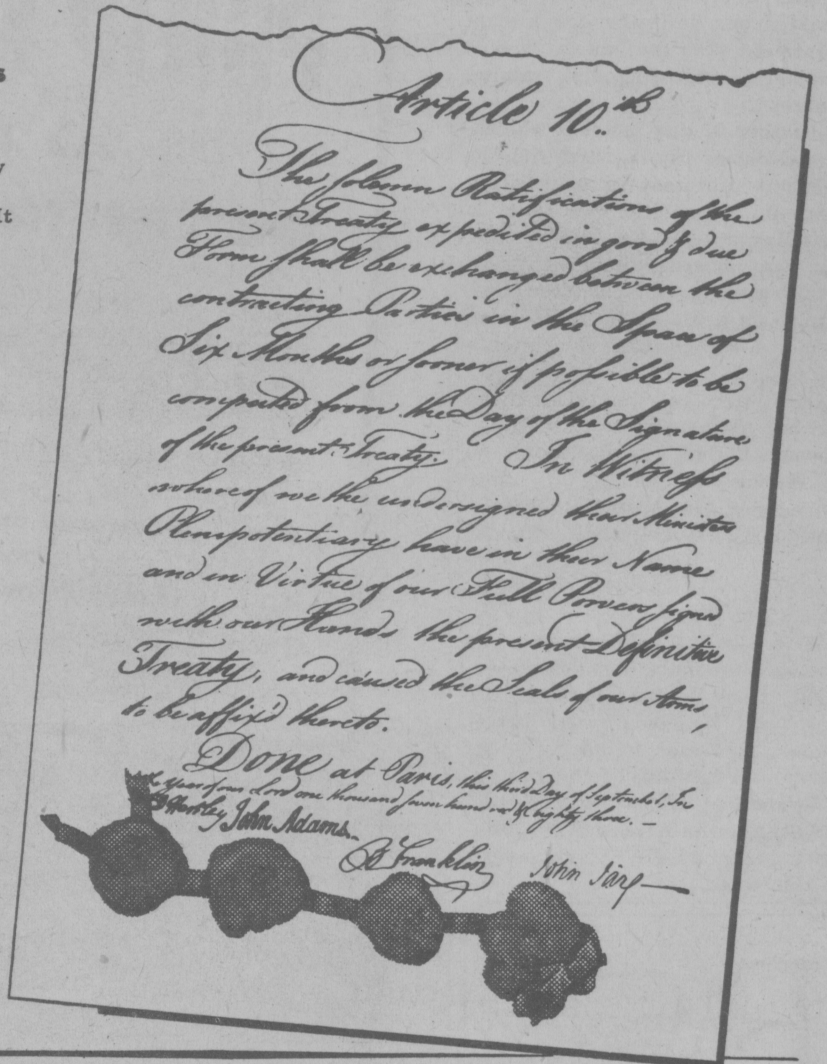 s
y
it
Article 10.th
The solemn Ratifications of the
present Treaty expedited in good & due
Form shall be exchanged between the
contracting Parties in the Space of
Six Months or sooner if possible to be
computed from the Day of the Signature
of the present Treaty. In Witness
whereof we the undersigned their Ministers
Plenipotentiary have in their Name
and in Virtue of our Full Powers signed
with our Hands the present Definitive
Treaty, and caused the Seals of our Arms
to be affix'd thereto.
Done at Paris, this third Day of September, In
the Year of our Lord one thousand seven hundred & eighty three. —
D Hartley John Adams.
B Franklin John Jay —